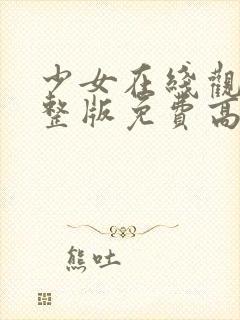 少女在綫觀
整版免費高
熊吐